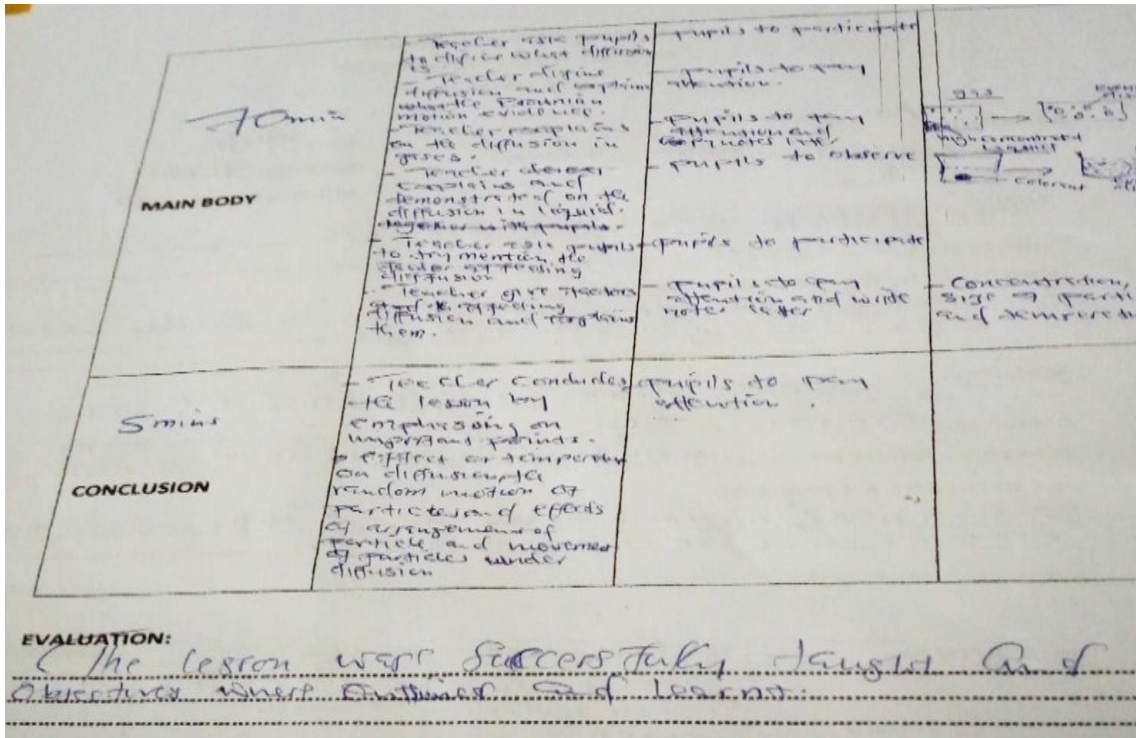 70min
MAIN BODY
- Teacher ask pupils
to define what diffusion
is
- Teacher define
diffusion and explains
motion evidence.
- Teacher explains
on the diffusion in
gases.
- Teacher
explains and
demonstrated on the
diffusion in liquid.
together with pupils.
- Teacher ask pupils
to try mention the
diffusion
- Teacher give factors
diffusion and explains
them.
- pupils to participate
- pupils to pay
attention.
- pupils to pay
attention and
copy notes later
- pupils to observe
- pupils to participate
- pupils to pay
attention and write
notes later
gas
liquid
colorant
- Concentration,
size of parti
and temperatu
5mins
CONCLUSION
- Teacher concludes
the lesson by
emphasising on
important points.
effect or temperatur
on diffusion, the
random motion of
particles and effects
of arrangement of
particle and movement
of particles under
diffusion
pupils to pay
attention.
EVALUATION:
The lesson was successfully taught and
Objectives where and learnt.